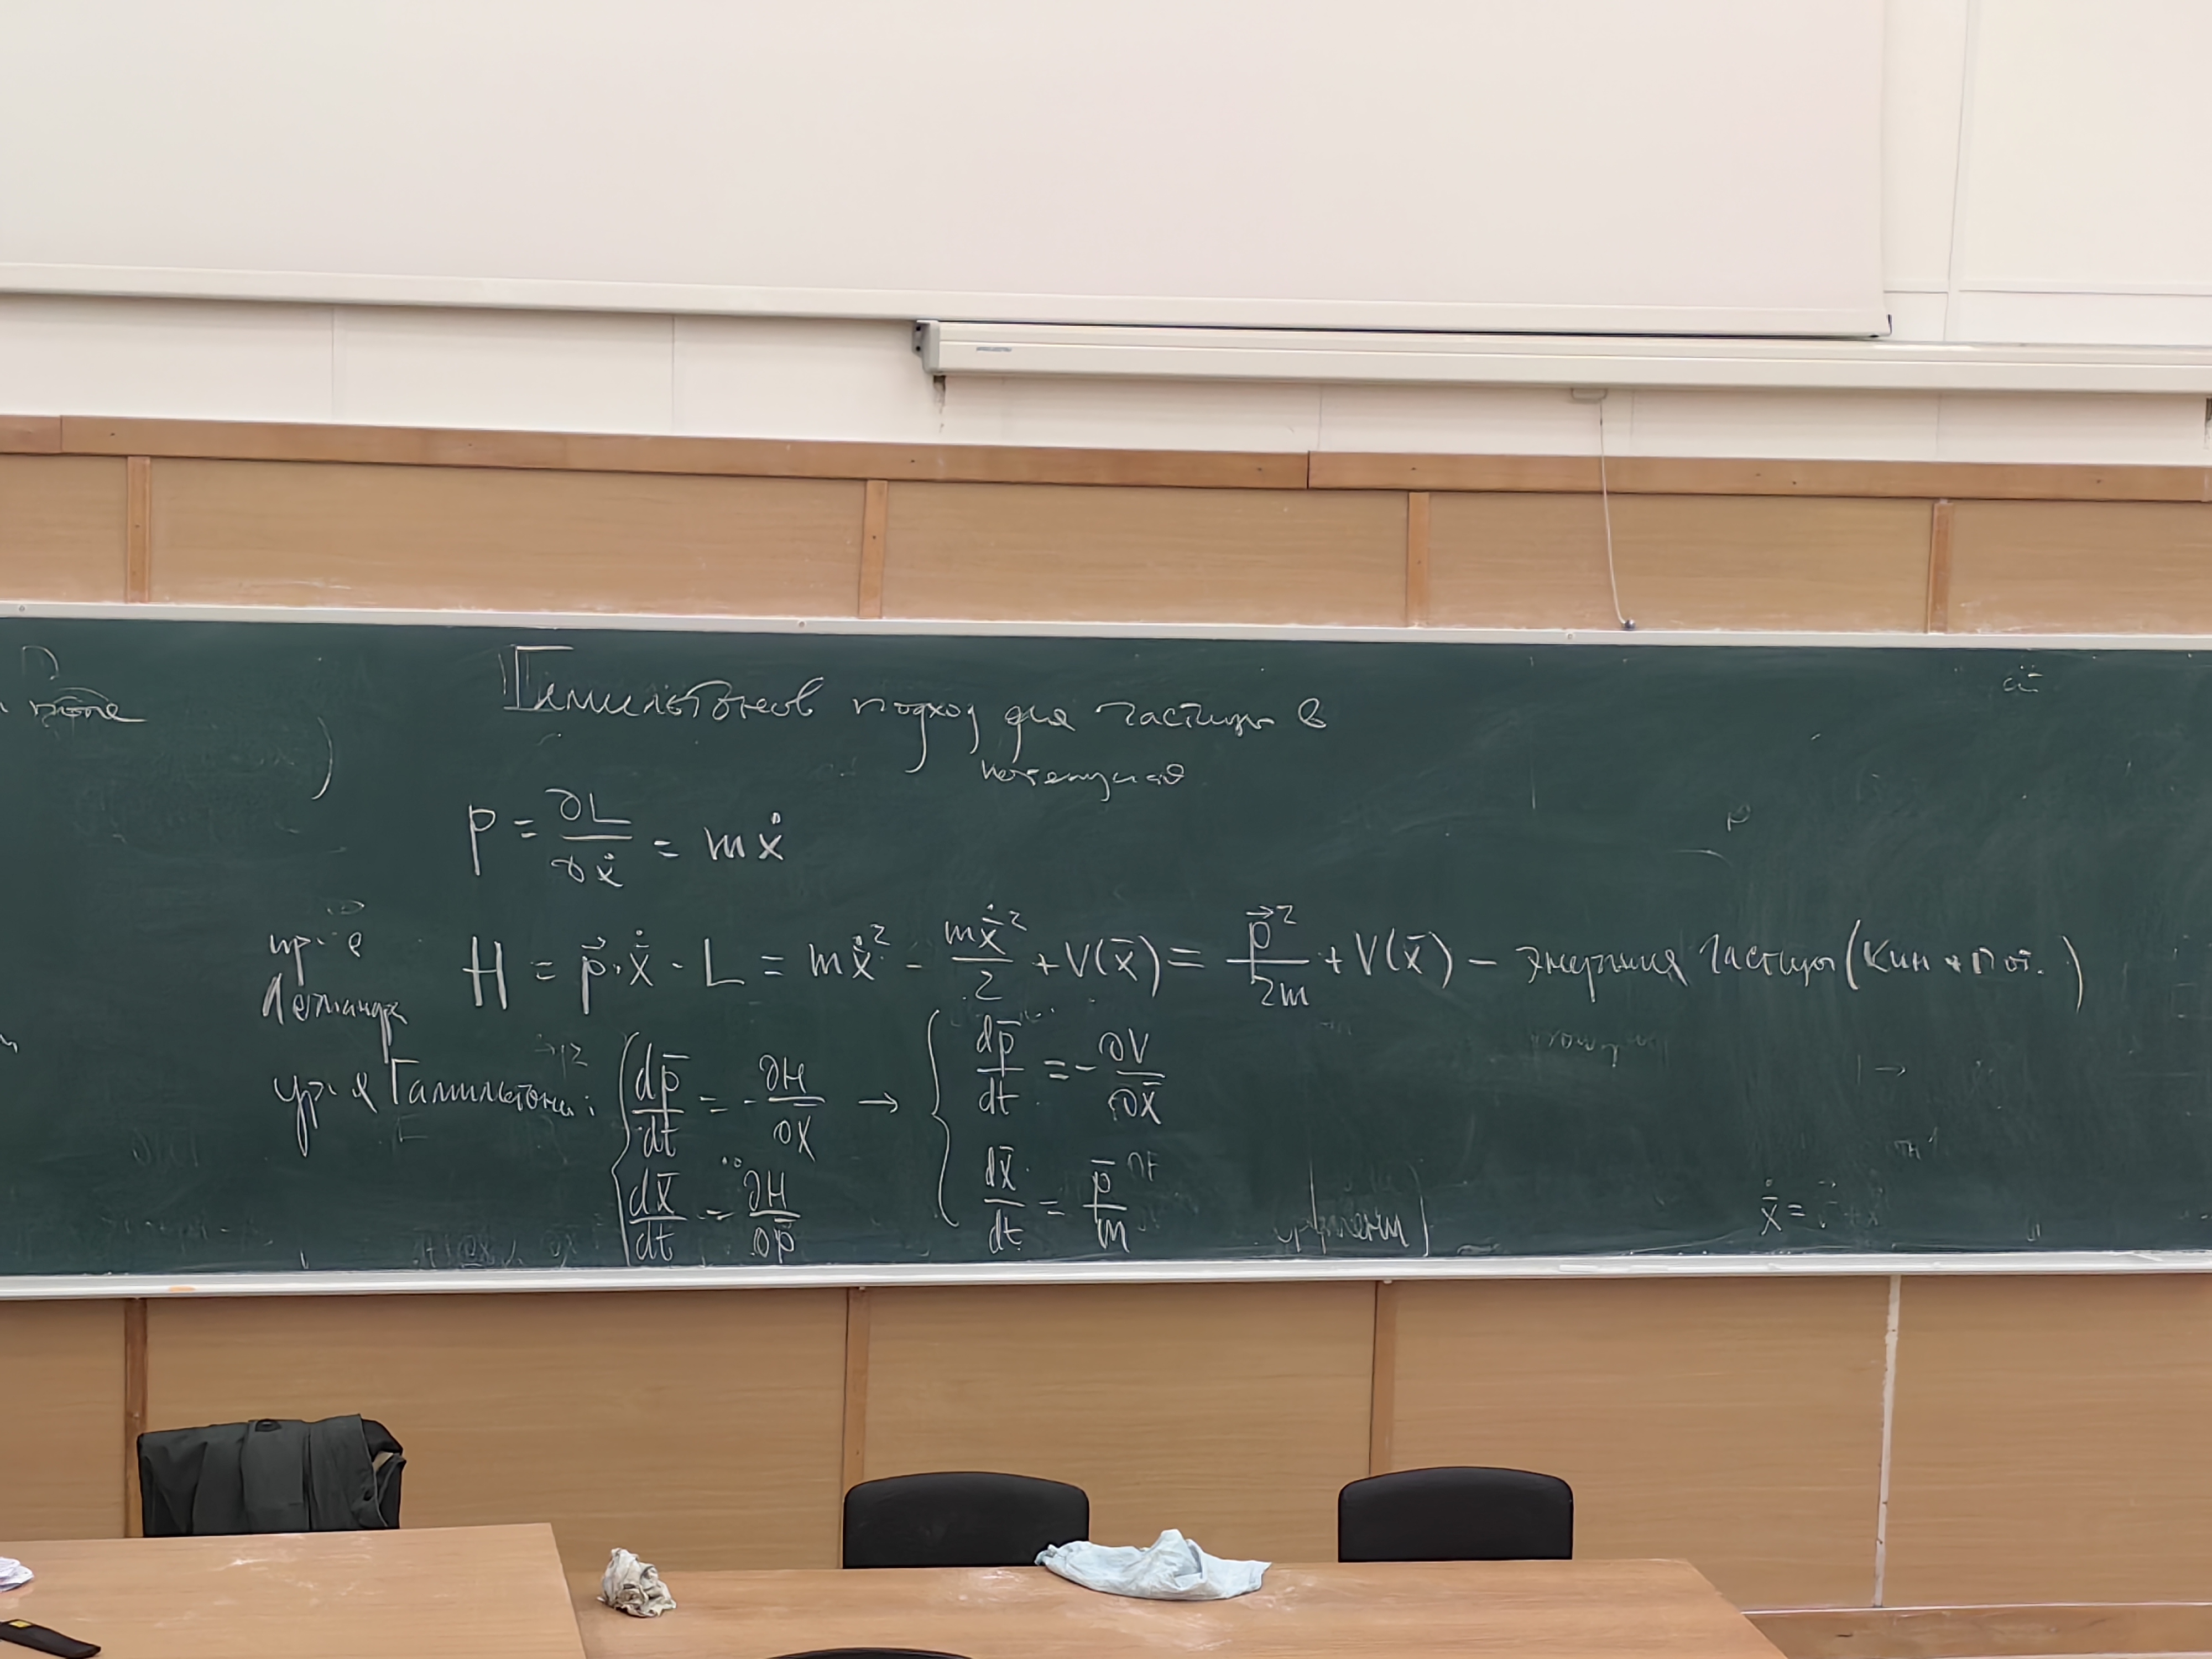 поле
Гамильтонов подход для частицы в
потенциале
p = ∂L/∂ẋ = mẋ
пр-е
Лежандра
H = p⃗·ẋ̄ - L = mẋ̄² - mẋ̄²/2 + V(x̄) = p⃗²/2m + V(x̄) – энергия частицы (кин + пот.)
ур-я Гамильтона: { dp̄/dt = -∂H/∂x̄ → { dp̄/dt = -∂V/∂x̄
dx̄/dt = ∂H/∂p̄ dx̄/dt = p̄/m
ẋ̄ =